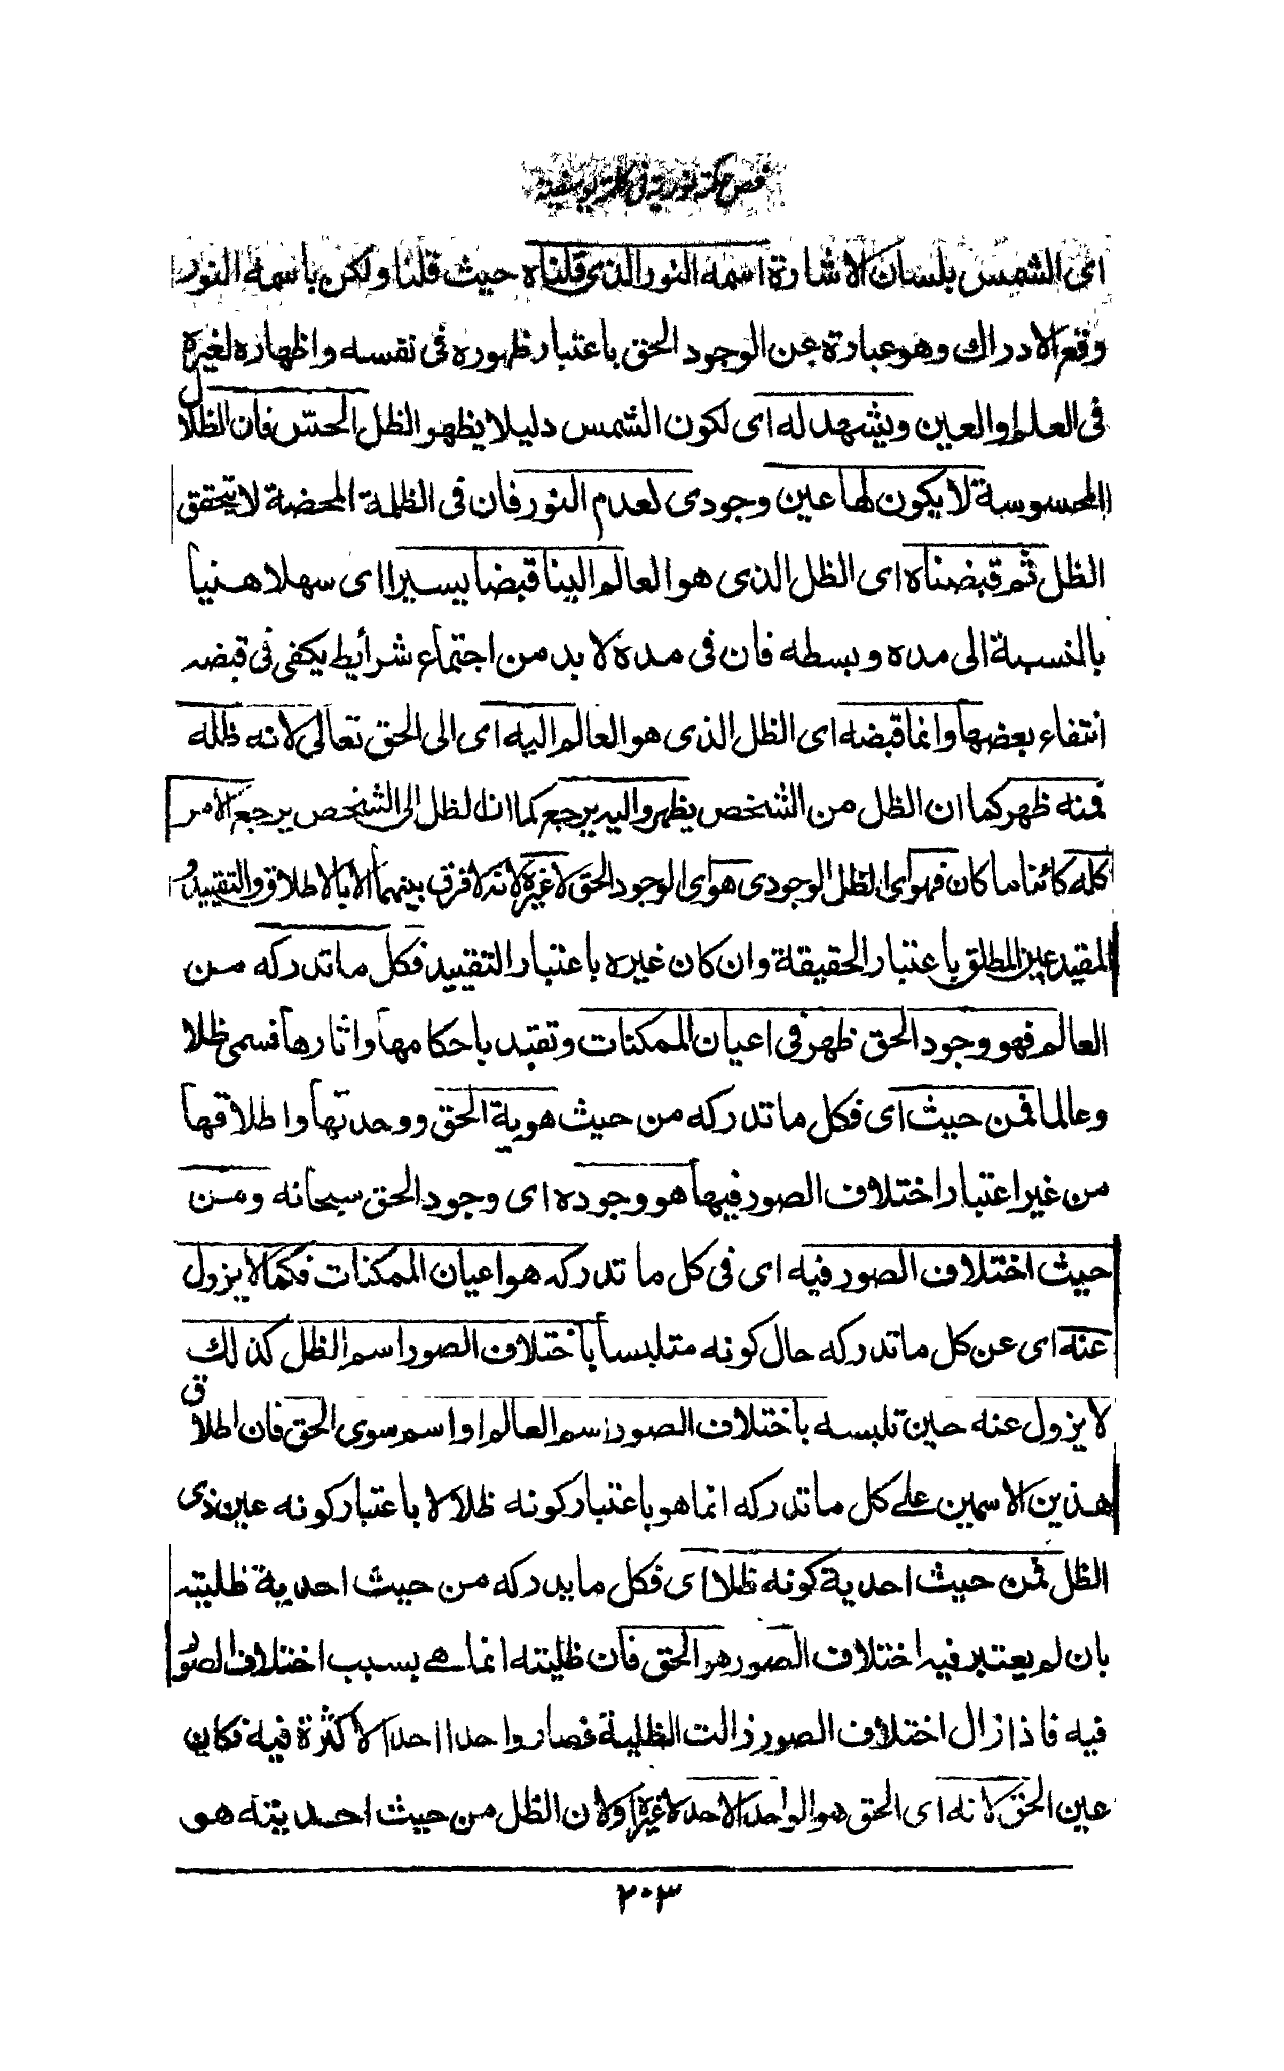 فص حكمة نورية فى كلمة يوسفية
اى الشمس بلسان الاشارة اسمه النور الذى قلناه حيث قلنا ولكن باسمه النور
وقع الادراك وهو عبارة عن الوجود الحق باعتبار ظهوره فى نفسه واظهاره لغيره
فى العلم او العين ويشهد له اى لكون الشمس دليلا يظهر الظل الحس فان الظلال
المحسوسة لا يكون لها عين وجودى لعدم النور فان فى الظلمة المحضة لا يتحقق
الظل ثم قبضناه اى الظل الذى هو العالم الينا قبضا يسيرا اى سهلا هنيأ
بالنسبة الى مده وبسطه فان فى مده لا بد من اجتماع شرائط يكفى فى قبضه
انتفاء بعضها وانما قبضه اى الظل الذى هو العالم اليه اى الى الحق تعالى لانه ظله
فمنه ظهر كما ان الظل من الشخص يظهر واليه يرجع كما ان الظل الى الشخص يرجع الامر
كله كائنا ما كان فهو اى الظل الوجودى هو اى الوجود الحق لا غيره لانه لا فرق بينهما الا بالاطلاق والتقييد و
المقيد عين المطلق باعتبار الحقيقة وان كان غيره باعتبار التقييد فكل ما تدركه من
العالم فهو وجود الحق ظهر فى اعيان الممكنات وتقيد باحكامها واثارها فسمى ظلا
وعالما فمن حيث اى فكل ما تدركه من حيث هوية الحق ووحدتها واطلاقها
من غير اعتبار اختلاف الصور فيها هو وجوده اى وجود الحق سبحانه ومن
حيث اختلاف الصور فيه اى فى كل ما تدركه هو اعيان الممكنات فكما لا يزول
عنه اى عن كل ما تدركه حال كونه متلبسا باختلاف الصور اسم الظل كذلك
لا يزول عنه حين تلبسه باختلاف الصور اسم العالم او اسم سوى الحق فان اطلاق
هذين الاسمين على كل ما تدركه انما هو باعتبار كونه ظلا لا باعتبار كونه عين ذى
الظل فمن حيث احدية كونه ظلا اى فكل ما يدركه من حيث احدية ظليته
بان لم يعتبر فيه اختلاف الصور هو الحق فان ظليته انما هے بسبب اختلاف الصور
فيه فاذا زال اختلاف الصور زالت الظلية فصار واحدا احدا لا كثرة فيه فكان
عين الحق لانه اى الحق هو الواحد الاحد لا غيره ولان الظل من حيث احديته هو
٢٠٣